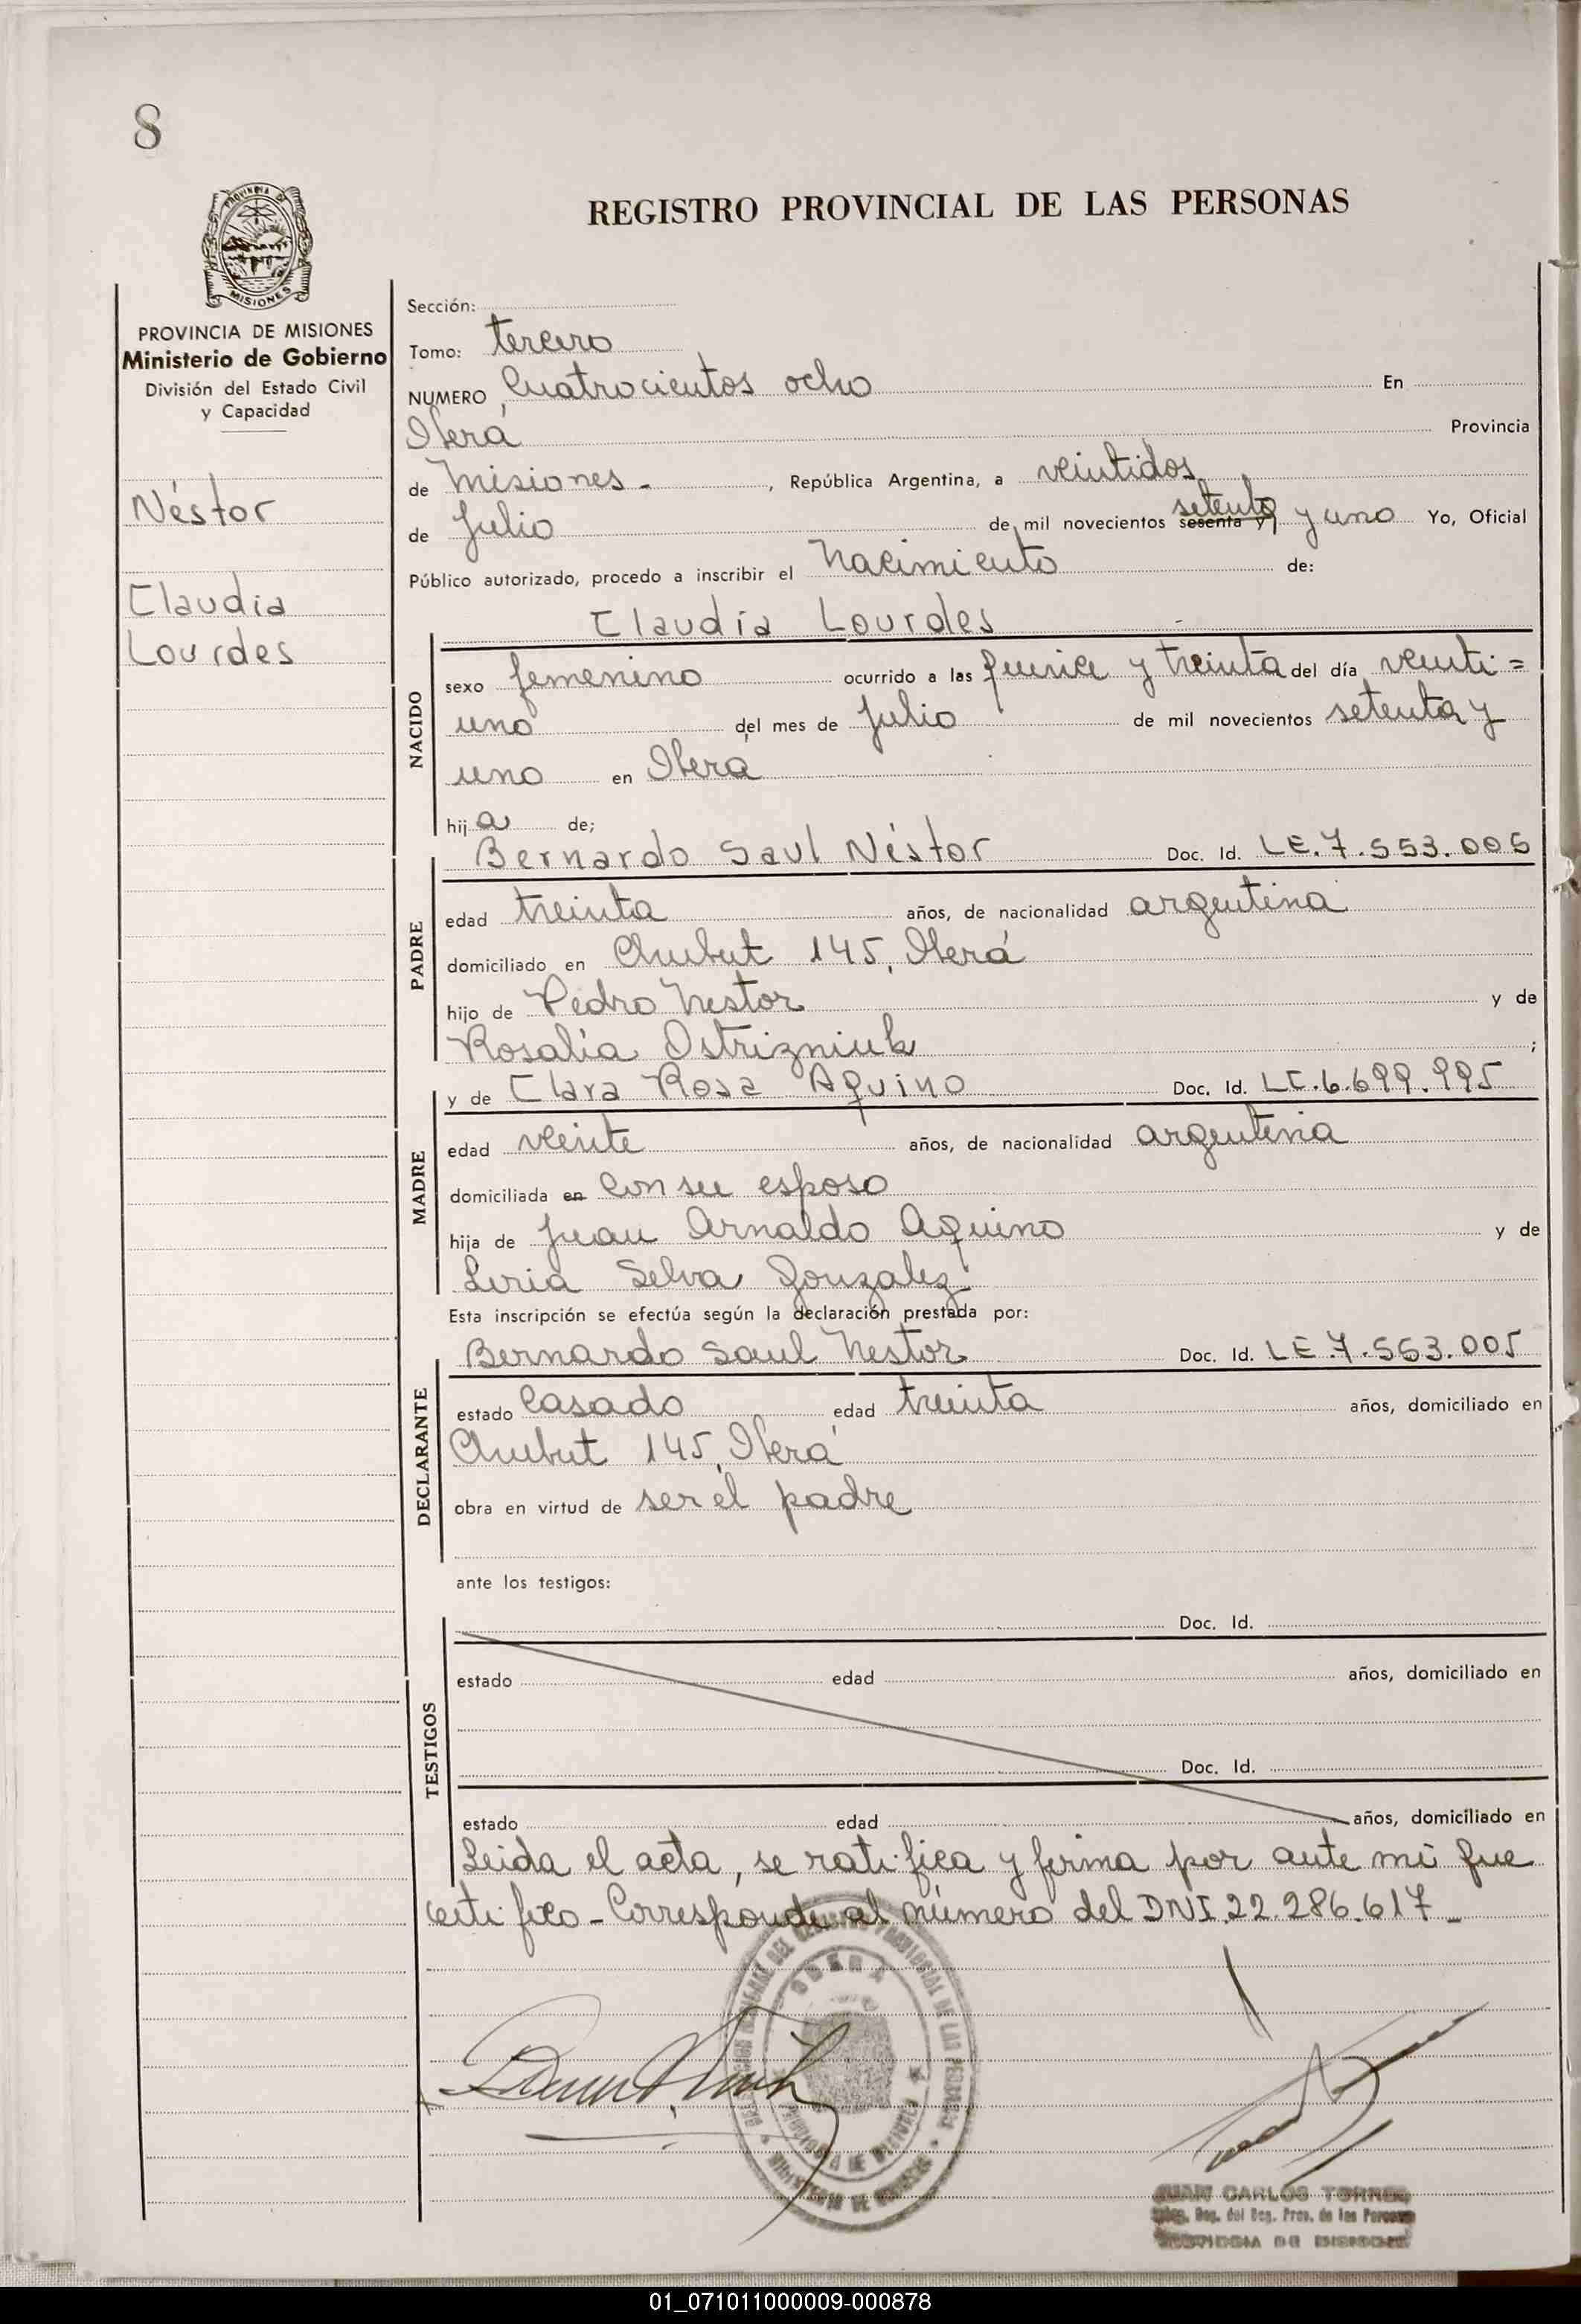 8
PROVINCIA DE
MISIONES
PROVINCIA DE MISIONES
Ministerio de Gobierno
División del Estado Civil
y Capacidad
Néstor
Claudia
Lourdes
REGISTRO PROVINCIAL DE LAS PERSONAS
Sección:
Tomo: tercero
NUMERO Cuatrocientos ocho En
Oberá Provincia
de Misiones - , República Argentina, a veintidos
de Julio de mil novecientos sesenta y setenta y uno Yo, Oficial
Público autorizado, procedo a inscribir el Nacimiento de:
Claudia Lourdes
NACIDO
sexo femenino ocurrido a las quince y treinta del día veinti=
uno del mes de Julio de mil novecientos setenta y
uno en Oberá
hij a de;
Bernardo Saul Néstor Doc. Id. LE.7.553.005
PADRE
edad treinta años, de nacionalidad argentina
domiciliado en Chubut 145, Oberá
hijo de Pedro Nestor y de
Rosalía Ostrizniuk ;
y de Clara Rosa Aquino Doc. Id. LC.6.699.995
MADRE
edad veinte años, de nacionalidad argentina
domiciliada en con su esposo
hija de Juan Arnaldo Aquino y de
Liria Selva Gonzalez
Esta inscripción se efectúa según la declaración prestada por:
Bernardo Saul Nestor Doc. Id. LE.7.553.005
DECLARANTE
estado Casado edad treinta años, domiciliado en
Chubut 145, Oberá
obra en virtud de ser el padre
ante los testigos:
Doc. Id.
TESTIGOS
estado edad años, domiciliado en
Doc. Id.
estado edad años, domiciliado en
Leida el acta, se ratifica y firma por ante mi que
certifico - Corresponde al número del DNI.22.286.617 -
OBERA
PROVINCIA DE MISIONES
MINISTERIO DE GOBIERNO
JUAN CARLOS TORRES
Reg. Prov. de las Personas
PROVINCIA DE MISIONES
01_071011000009-000878